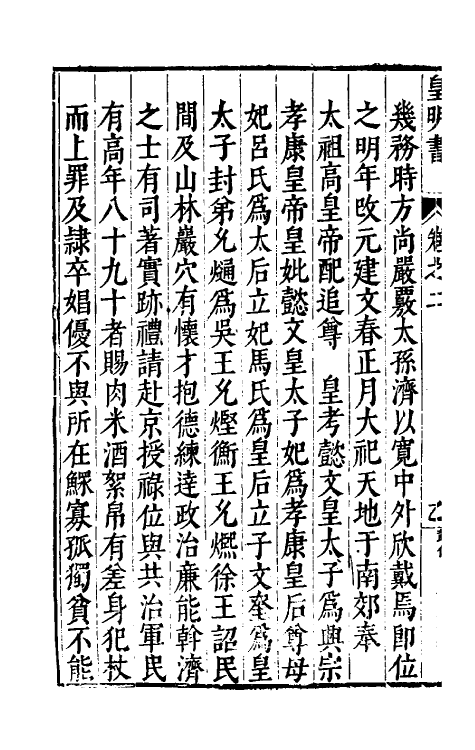 皇明書 卷之二
幾務時方尚嚴覈太孫濟以寬中外欣戴焉即位
之明年改元建文春正月大祀天地于南郊奉
太祖高皇帝配追尊 皇考懿文皇太子為興宗
孝康皇帝皇妣懿文皇太子妃為孝康皇后尊母
妃呂氏爲太后立妃馬氏爲皇后立子文奎爲皇
太子封弟允熥爲吳王允熞衡王允㷩徐王詔民
間及山林巖穴有懷才抱德練達政治廉能幹濟
之士有司著實跡禮請赴京授祿位與共治軍民
有高年八十九十者賜肉米酒絮帛有差身犯杖
而上罪及隷卒娼優不與所在鰥寡孤獨貧不能